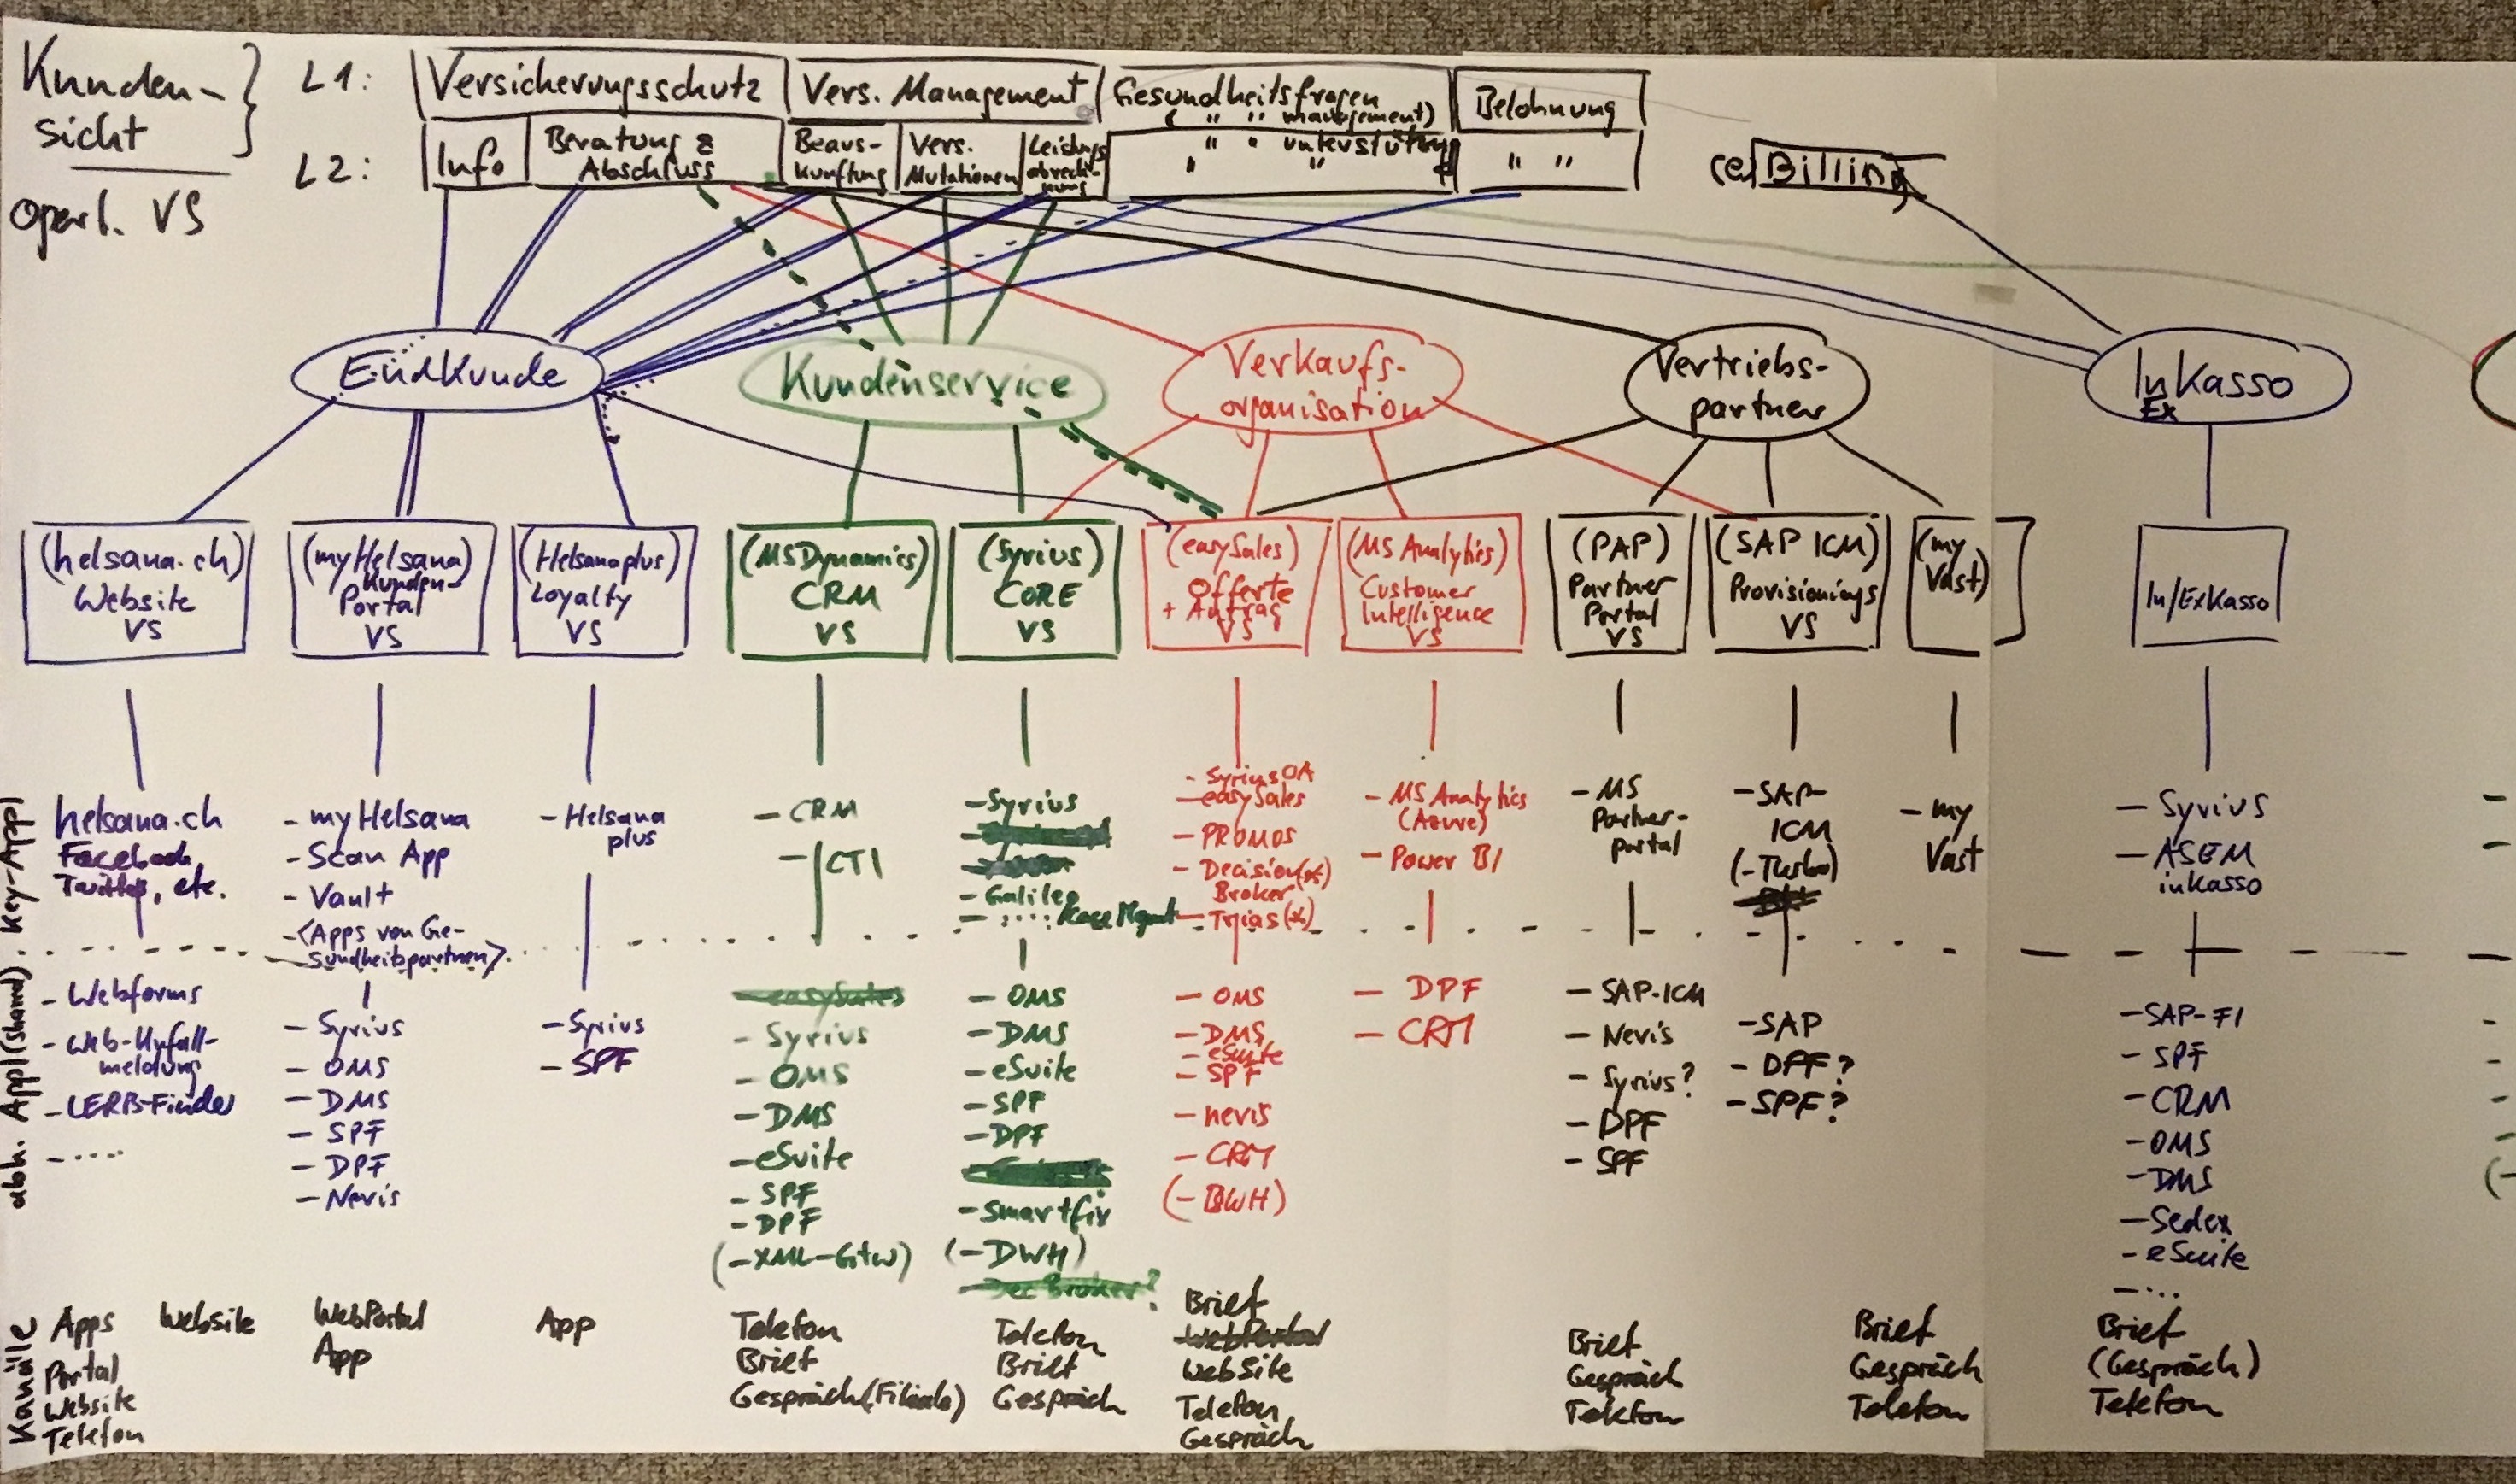 Kunden-
sicht
operl. VS
L1:
Versicherungsschutz
Vers. Management
Gesundheitsfragen
( " " management)
Belohnung
L2:
Info
Beratung &
Abschluss
Beaus-
kunftung
Vers.
Mutationen
Leistungs
abrech-
nung
" " unterstützung
" "
" "
(e) Billing
Endkunde
Kundenservice
Verkaufs-
organisation
Vertriebs-
partner
InKasso
Ex
(helsana.ch)
Website
VS
(myHelsana)
Kunden-
Portal
VS
(Helsanaplus)
Loyalty
VS
(MSDynamics)
CRM
VS
(Syrius)
CORE
VS
(easySales)
Offerte
+ Antrag
VS
(MS Analytics)
Customer
Intelligence
VS
(PAP)
Partner
Portal
VS
(SAP ICM)
Provisionings
VS
(my
Vast)
In/ExKasso
Key-Appl
helsana.ch
Facebook,
Twitter, etc.
- myHelsana
- Scan App
- Vault
-<Apps von Ge-
sundheitspartnern>
- Helsana
plus
- CRM
- CTI
- Syrius
- Galileo
- .... Kase Mgmt
- SyriusOA
- easySales
- PROMOS
- Decision(*)
Broker
- Trias(*)
- MS Analytics
(Azure)
- Power BI
- MS
Partner-
portal
- SAP-
ICM
(-Turbo)
- my
Vast
- Syrius
- ASEM
inkasso
abh. Appl(shared)
- Webforms
- Web-Unfall-
meldung
- LERB-Finder
- ....
- Syrius
- OMS
- DMS
- SPF
- DPF
- Nevis
- Syrius
- SPF
- easySales
- Syrius
- OMS
- DMS
- eSuite
- SPF
- DPF
(- XML-Gtw)
- OMS
- DMS
- eSuite
- SPF
- DPF
- Smartfix
(- DWH)
- Dec Broker?
- OMS
- DMS
- eSuite
- SPF
- nevis
- CRM
(- BWH)
- DPF
- CRM
- SAP-ICM
- Nevis
- Syrius?
- DPF
- SPF
- SAP
- DFF?
- SPF?
- SAP-FI
- SPF
- CRM
- OMS
- DMS
- Sedex
- eSuite
- ...
Kanäle
Apps
Portal
Website
Telefon
Website
WebPortal
App
App
Telefon
Brief
Gespräch(Filiale)
Telefon
Brief
Gespräch
Brief
WebPortal
WebSite
Telefon
Gespräch
Brief
Gespräch
Telefon
Brief
Gespräch
Telefon
Brief
(Gespräch)
Telefon